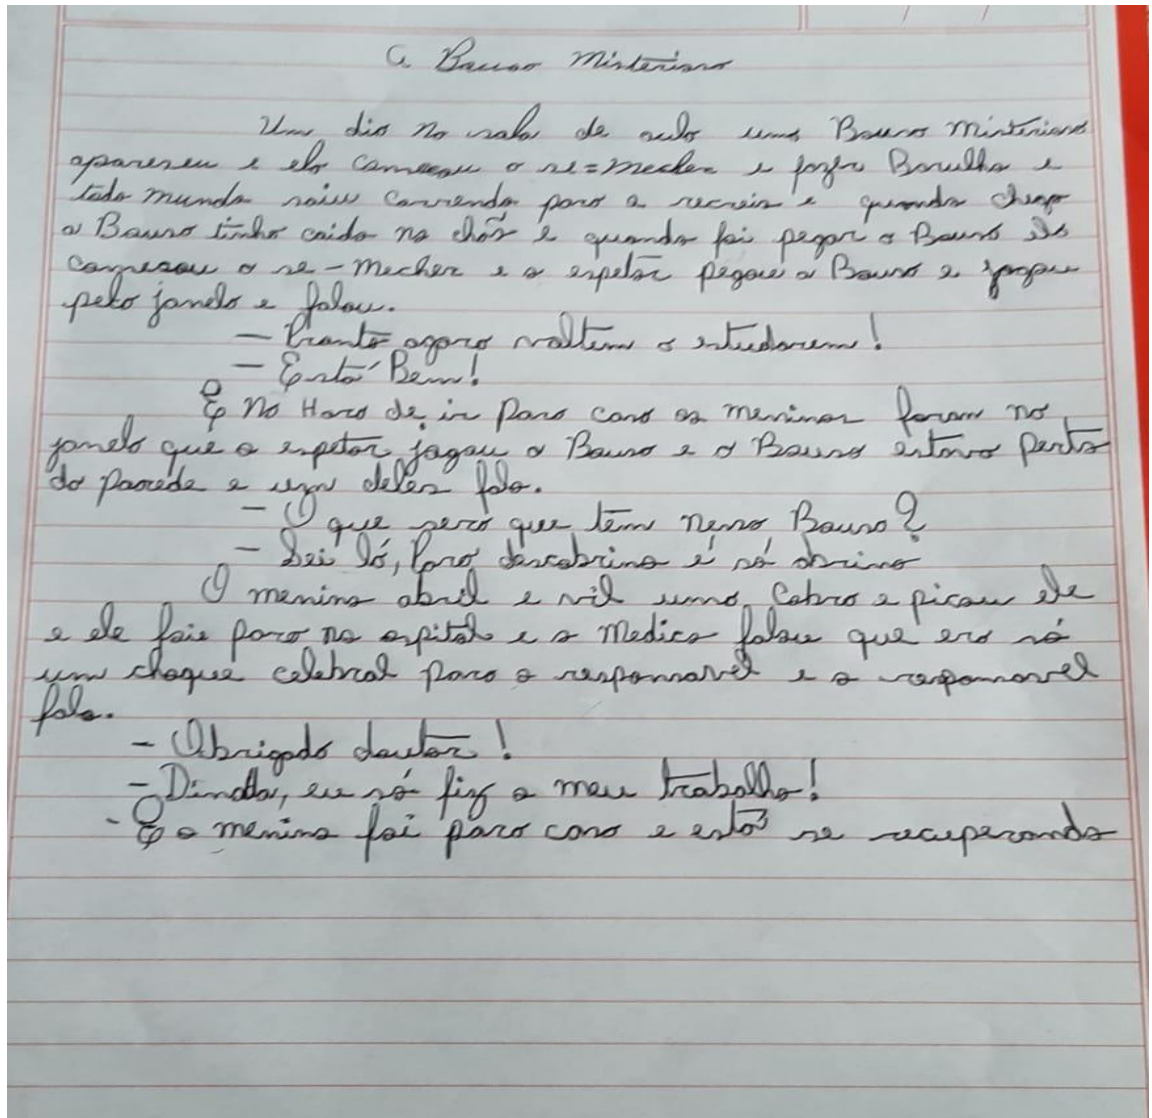 A Bauso Misteriosa
Um dia na sala de aula uma Bausa Misteriosa
apareseu e ela começou a se=mecher e fazer Barulho e
todo mundo saiu correndo para o recreio e quando chego
a Bausa tinha caido no chão e quando foi pegar a Bausa ela
comesou a se-mecher e o espetor pegou a Bausa e jogou
pela janela e falou.
— Pronto agora voltem a estudarem!
— Está Bem!
E na Hora de ir Para casa os meninos foram na
janela que o espetor jogou a Bausa e a Bausa estava perto
da parede e um deles falo.
- O que será que tem nessa Bausa?
- Sei lá, Para descobrino é só abrino
O menino abril e vil uma Cobra e picou ele
e ele foie para no ospital e o Medico falou que era só
um choque celebral para o responsavel e o responsavel
falo.
- Obrigado doutor!
- Dinada, eu só fiz o meu trabalho!
- E o menino foi para casa e está se recuperando